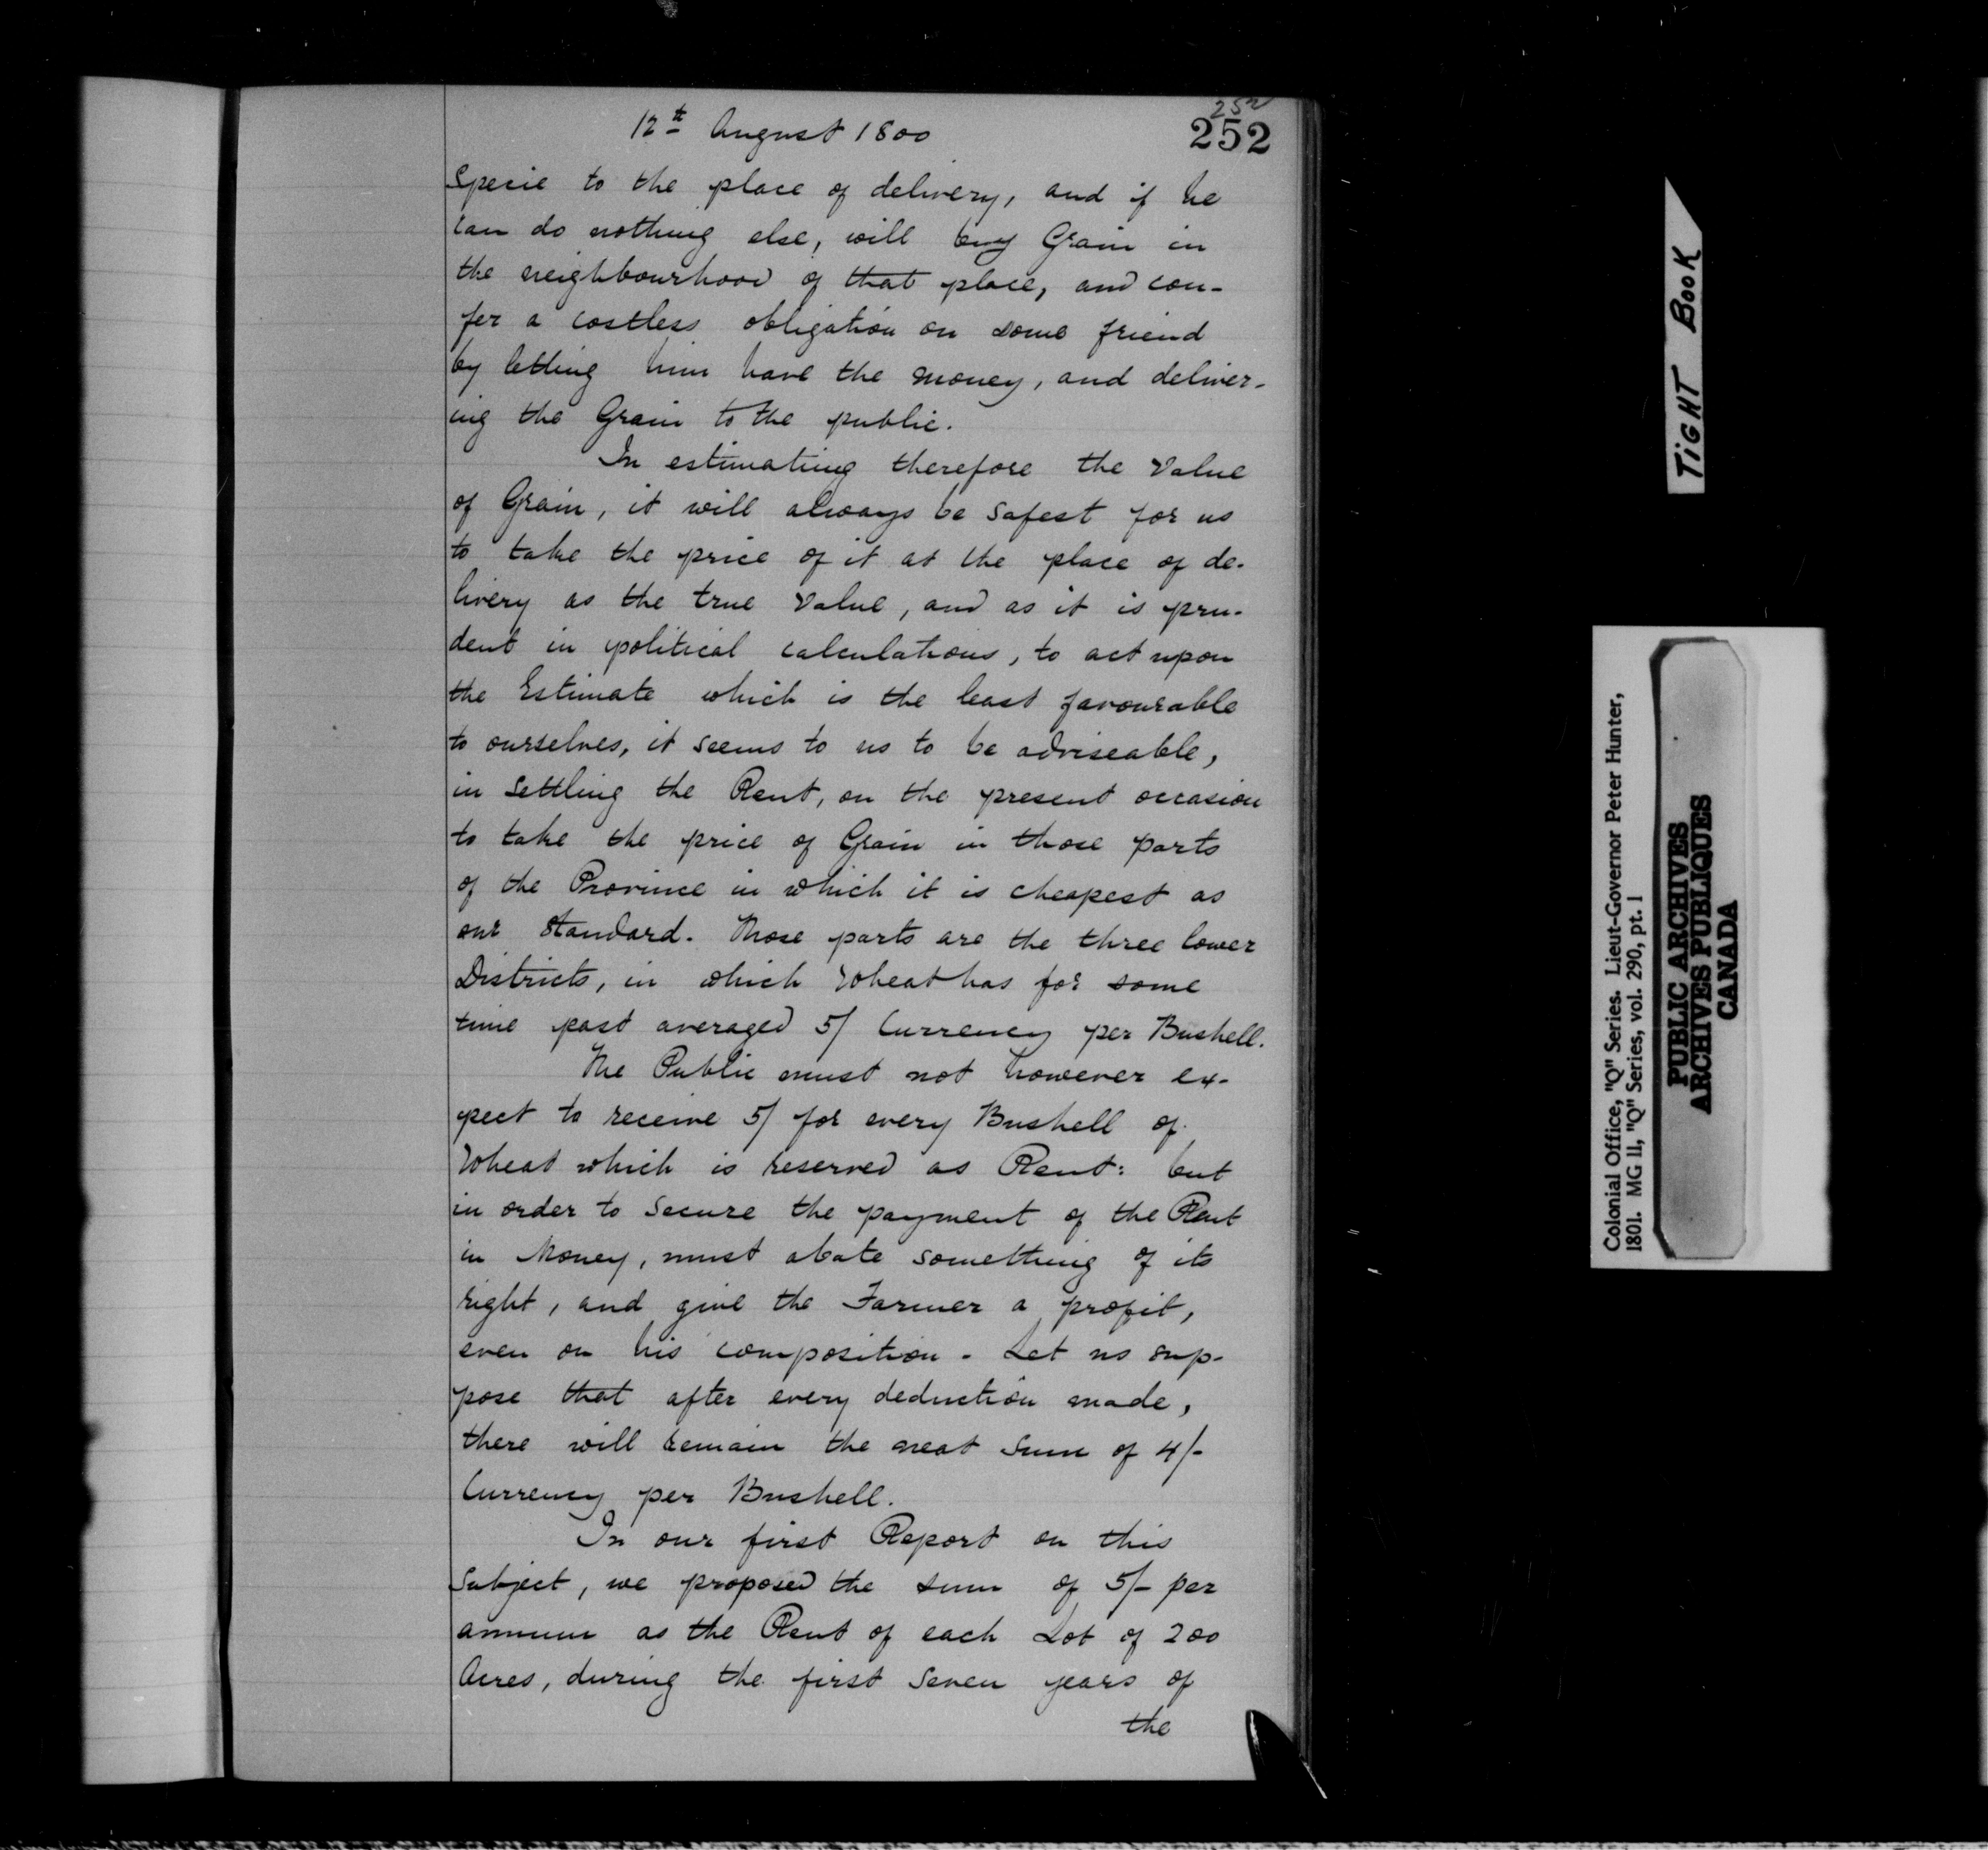 252
12th August 1800
252
Specie to the place of delivery, and if he
can do nothing else, will buy Grain in
the neighbourhood of that place, and con-
fer a costless obligation on some friend
by letting him have the money, and deliver-
ing the Grain to the public.
In estimating therefore the Value
of Grain, it will always be safest for us
to take the price of it at the place of de-
livery as the true Value, and as it is pru-
dent in political calculations, to act upon
the Estimate which is the least favourable
to ourselves, it seems to us to be adviseable,
in settling the Rent, on the present occasion
to take the price of Grain in those parts
of the Province in which it is cheapest as
our Standard. Those parts are the three lower
Districts, in which Wheat has for some
time past averaged 5/ Currency per Bushell.
The Public must not however ex-
pect to receive 5/ for every Bushell of
Wheat which is reserved as Rent: but
in order to secure the payment of the Rent
in Money, must abate something of its
right, and give the Farmer a profit,
even on his composition. Let us sup-
pose that after every deduction made,
there will remain the neat Sum of 4/-
Currency per Bushell.
In our first Report on this
Subject, we proposed the sum of 5/- per
annum as the Rent of each Lot of 200
Acres, during the first seven years of
the
TIGHT BOOK
Colonial Office, "Q" Series. Lieut-Governor Peter Hunter,
1801. MG 11, "Q" Series, vol. 290, pt. 1
PUBLIC ARCHIVES
ARCHIVES PUBLIQUES
CANADA